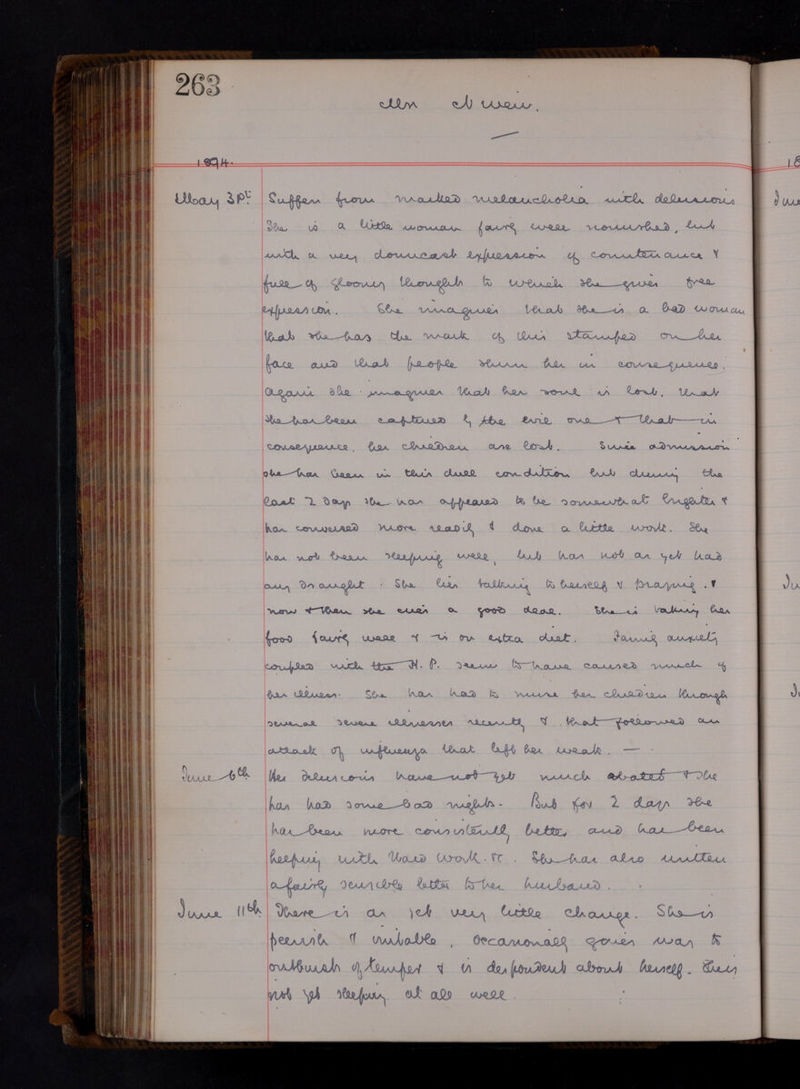 263
1894.
May 31st Suffers from marked melancholia with delusions
She is a little woman fairly well nourished, but
with a very downcast expression of countenance &
full of gloomy thoughts to which she gives free
expression. She imagines that she is a bad woman
that she has the mark of this stamped on her
face and that people shun her in consequence.
Again she imagines that her soul is lost, that
she has been captured by the evil one & that in
consequence, her children are lost. Since admission
she has been in this dull condition but during the
last 2 days she has appeared to be somewhat brighter &
has conversed more readily & done a little work. She
has not been sleeping well, but has not as yet had
any draught. She lies talking to herself & praying. &
now & then she cries a good deal. She is taking her
food fairly well & is on extra diet. Family anxiety
coupled with the H. P. seems to have caused much of
her illness. She has had to nurse her children through
several severe illnesses recently & that followed an
attack of influenza that left her weak. —
June 6th Her delusions have not yet much abated & she
has had some bad nights. But for 2 days she
has been more consistently better and has been
helping with Ward work. &c. She has also written
a fairly sensible letter to her husband.
June 11th There is as yet very little change. She is
peevish & irritable, occasionally gives way to
outbursts of temper & is despondent about herself.
not yet sleeping at all well.